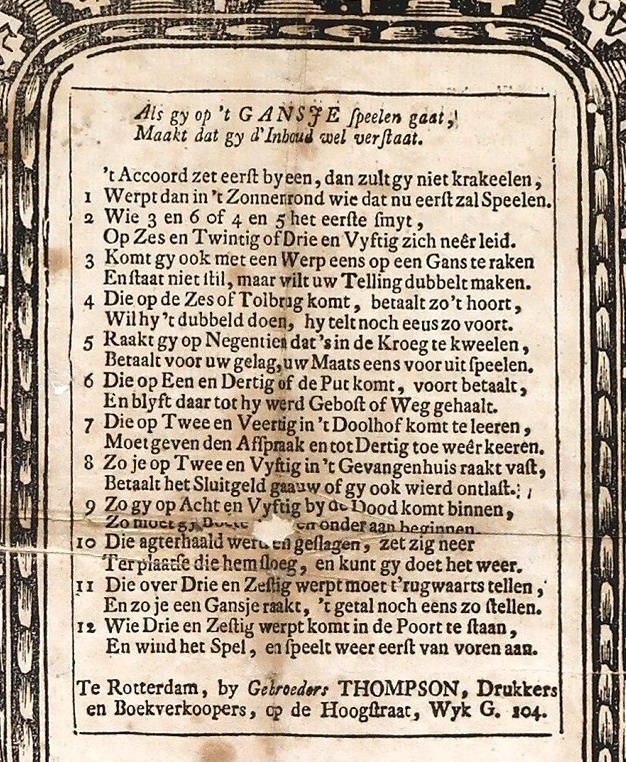 Als gy op 't GANSJE speelen gaat,
Maakt dat gy d'Inhoud wel verstaat.
't Accoord zet eerst by een, dan zult gy niet krakeelen,
1 Werpt dan in 't Zonnenrond wie dat nu eerst zal Speelen.
2 Wie 3 en 6 of 4 en 5 het eerste smyt,
Op Zes en Twintig of Drie en Vyftig zich neêr leid.
3 Komt gy ook met een Werp eens op een Gans te raken
En staat niet stil, maar wilt uw Telling dubbelt maken.
4 Die op de Zes of Tolbrug komt, betaalt zo 't hoort,
Wil hy 't dubbeld doen, hy telt noch eeus zo voort.
5 Raakt gy op Negentien dat 's in de Kroeg te kweelen,
Betaalt voor uw gelag, uw Maats eens voor uit speelen.
6 Die op Een en Dertig of de Put komt, voort betaalt,
En blyft daar tot hy werd Gebost of Weg gehaalt.
7 Die op Twee en Veertig in 't Doolhof komt te leeren,
Moet geven den Afspraak en tot Dertig toe weêr keeren.
8 Zo je op Twee en Vyftig in 't Gevangenhuis raakt vast,
Betaalt het Sluitgeld gaauw of gy ook wierd ontlast.
9 Zo gy op Acht en Vyftig by de Dood komt binnen,
Zo moet gy en onder aan beginnen
10 Die agterhaald werd en geslagen, zet zig neer
Ter plaatse die hem sloeg, en kunt gy doet het weer.
11 Die over Drie en Zestig werpt moet t'rugwaarts tellen,
En zo je een Gansje raakt, 't getal noch eens zo stellen.
12 Wie Drie en Zestig werpt komt in de Poort te staan,
En wind het Spel, en speelt weer eerst van voren aan.
Te Rotterdam, by Gebroeders THOMPSON, Drukkers
en Boekverkoopers, op de Hoogstraat, Wyk G. 204.